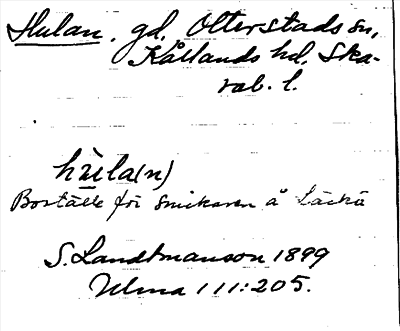 Hulan. gd. Otterstads sn,
Kållands hd. Ska-
rab. l.
hùla(n)
Boställe för snickaren å Läckö
S. Landtmanson 1899
Ulma 111:205.